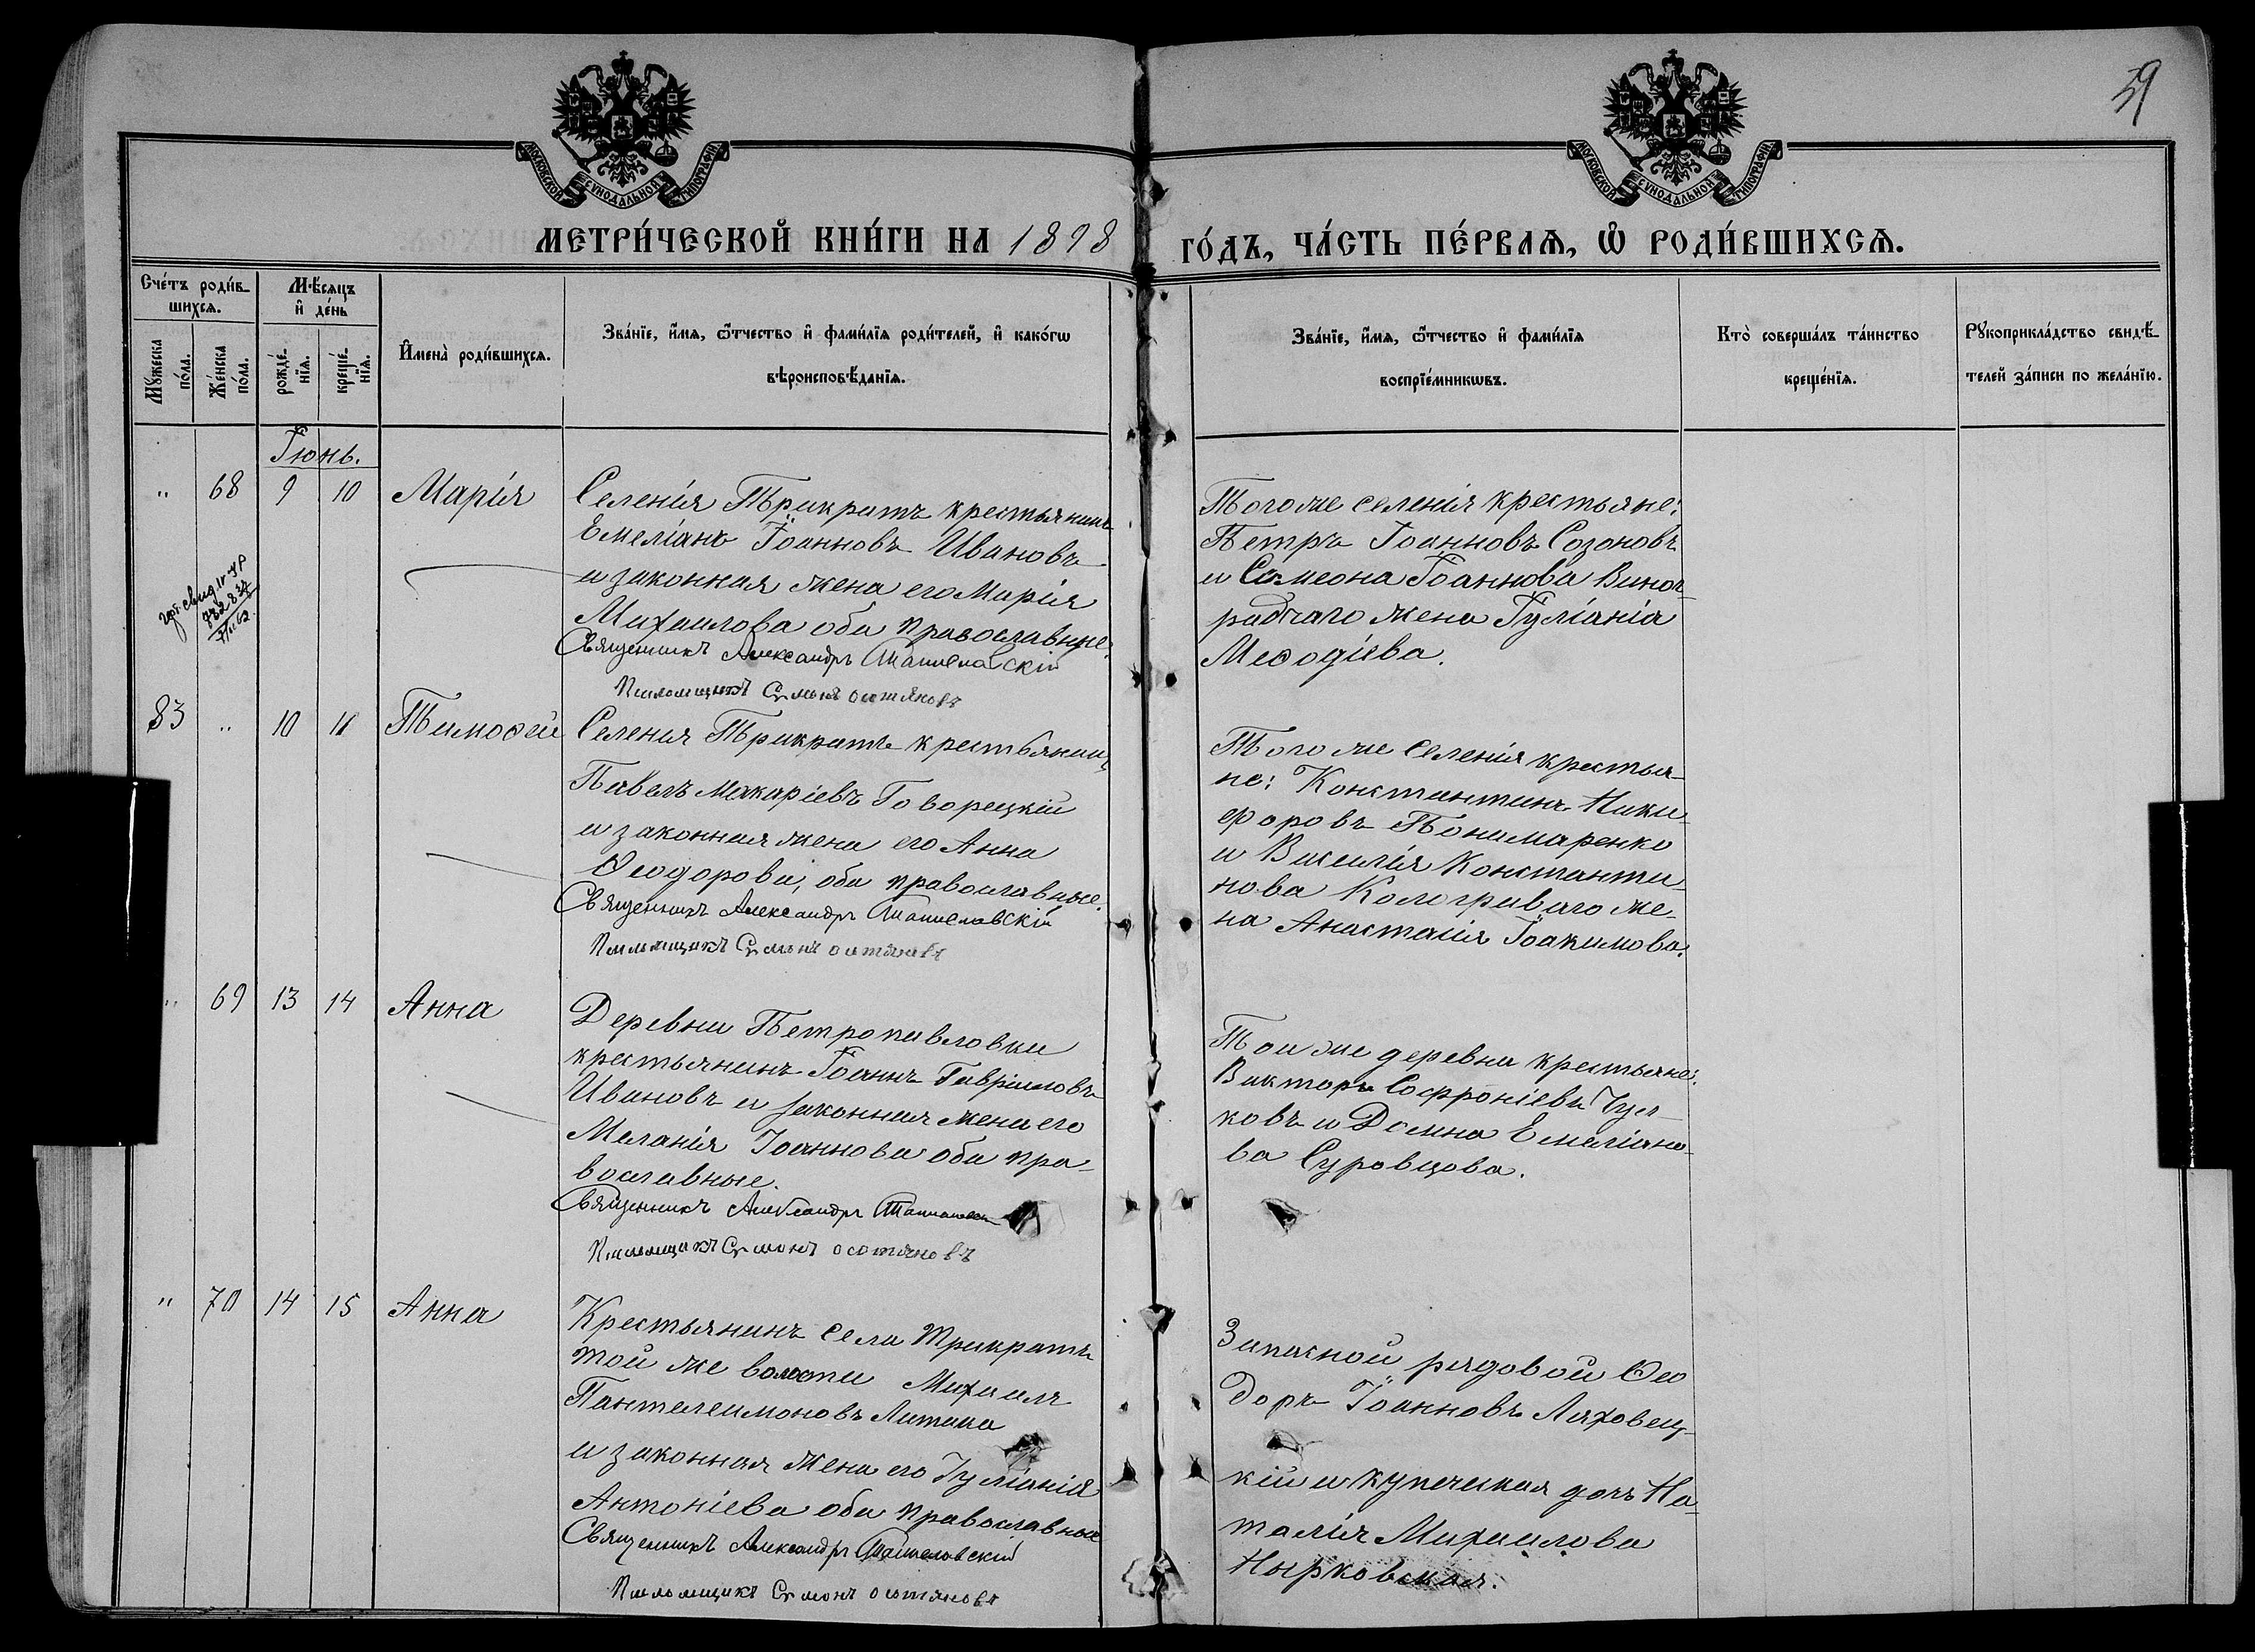 59
МОСКОВСКОЙ СУНОДАЛЬНОЙ ТИПОГРАФІИ
МОСКОВСКОЙ СУНОДАЛЬНОЙ ТИПОГРАФІИ
МЕТРИ́ЧЕСКОЙ КНИ́ГИ НА 1898 ГО́ДЪ, ЧА́СТЬ ПЕ́РВАѦ, Ѡ҆ РОДИ́ВШИХСѦ.
Сче́тъ роди́в-
шихсѧ.
Мѣ́сѧцъ
и҆ де́нь
Мꙋ́жеска
по́ла.
Же́нска
по́ла.
рожде́-
нїѧ.
креще́-
нїѧ.
И҆мена̀ роди́вшихсѧ.
Зва́нїе, и҆́мѧ, ѻ҆́тчество и҆ фами́лїѧ роди́телей, и҆ како́гѡ
вѣроисповѣ́данїѧ.
Зва́нїе, и҆́мѧ, ѻ҆́тчество и҆ фами́лїѧ
воспрїе́мникѡвъ.
Кто̀ соверша́лъ та́инство
креще́нїѧ.
Рꙋкоприкла́дство свидѣ́-
телей за́писи по жела́нїю.
Іюнь.
" 68 9 10 Марія
Селенія Трикратъ крестьянинъ
Емеліанъ Іоанновъ Ивановъ
и законная жена его Марія
Михаилова оба православные.
Священникъ Александръ
Псаломщикъ
Тогоже селенія крестьяне:
Петръ Іоанновъ Созоновъ
и Симеона Іоаннова Виног-
радчаго жена Іуліанія
Меѳодіева.
83 " 10 11 Тимоѳей
Селенія Трикратъ крестьянинъ
Павелъ Макаріевъ Говорецкій
и законная жена его Анна
Ѳеодорова, оба православные.
Священникъ Александръ
Псаломщикъ
Того же селенія крестья-
не: Константинъ Ники-
форовъ Пономаренко
и Василія Константи-
нова Кологриваго же-
на Анастасія Іоакимова.
" 69 13 14 Анна
Деревни Петропавловки
крестьянинъ Іоаннъ Гавріиловъ
Ивановъ и законная жена его
Меланія Іоаннова оба пра-
вославные.
Священникъ Александръ
Псаломщикъ
Той же деревни крестьяне:
Викторъ Софроніевъ Чул-
ковъ и Домна Емеліано-
ва Суровцова.
" 70 14 15 Анна
Крестьянинъ села Трикратъ
той же волости Михаилъ
Пантелеимоновъ Литина
и законная жена его Іуліанія
Антоніева оба православные
Священникъ Александръ
Псаломщикъ
Запасной рядовой Ѳео
доръ Іоанновъ Ляховец-
кій и купеческая дочь На-
талія Михаилова
Нырковская.